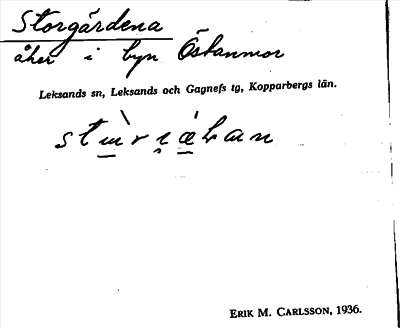 Storgårdena
åker i byn Östanmor
Leksands sn, Leksands och Gagnefs tg, Kopparbergs län.
ERIK M. CARLSSON, 1936.